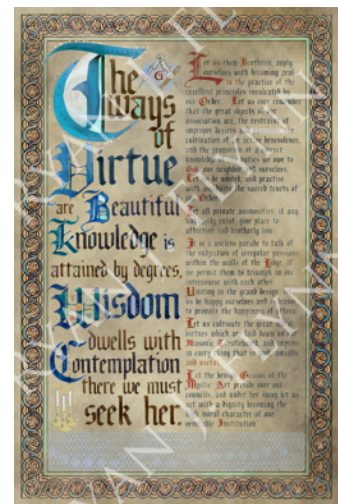 The
ways
of
Virtue
are Beautiful
Knowledge is
attained by degrees,
Wisdom
dwells with
Contemplation
there we must
seek her.
G
Let us then Brethren, apply
ourselves with becoming zeal
to the practice of the
excellent principles inculcated by
our Order. Let us ever remember
that the great objects of our
association are, the restraint of
improper desires and
cultivation of an active benevolence,
and the promotion of a correct
knowledge of the duties we owe to
God our neighbor and ourselves.
Let us be united, and practise
with the sacred tenets of
our Order.
Let all private animosities, if any
exist, give place to
affection and brotherly love.
It is a useless parade to talk of
the subjection of irregular passions
within the walls of the Lodge, if
we permit them to triumph in our
intercourse with each other.
Uniting in the grand design, let
us be happy ourselves and
to promote the happiness of others.
Let us cultivate the great moral
virtues which are laid down on our
Masonic and improve
in every thing that is amiable
and useful.
Let the benign Genius of the
Mystic Art preside over our
councils, and under her sway let us
act with a dignity becoming the
high moral character of our
venerable Institution.
RYAN J FLYNN
RYAN J FLYNN
RYAN J FLYNN